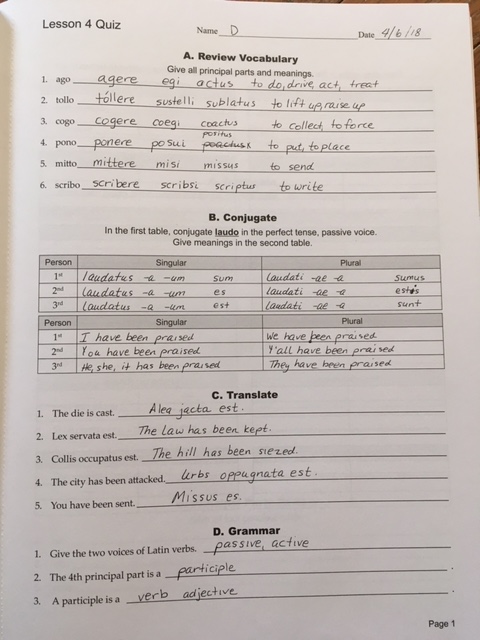 Lesson 4 Quiz
Name D Date 4/6/18
A. Review Vocabulary
Give all principal parts and meanings.
1. ago agere egi actus to do, drive, act, treat
2. tollo tóllere sustelli sublatus to lift up, raise up
3. cogo cogere coegi coactus to collect, to force
positus
4. pono ponere posui to put, to place
5. mitto mittere misi missus to send
6. scribo scribere scribsi scriptus to write
B. Conjugate
In the first table, conjugate laudo in the perfect tense, passive voice.
Give meanings in the second table.
Person Singular Plural
1st laudatus -a -um sum laudati -ae -a sumus
2nd laudatus -a -um es laudati -ae -a estis
3rd laudatus -a -um est laudati -ae -a sunt
Person Singular Plural
1st I have been praised We have been praised
2nd You have been praised Y'all have been praised
3rd He, she, it has been praised They have been praised
C. Translate
1. The die is cast. Alea jacta est.
2. Lex servata est. The law has been kept.
3. Collis occupatus est. The hill has been siezed.
4. The city has been attacked. Urbs oppugnata est.
5. You have been sent. Missus es.
D. Grammar
1. Give the two voices of Latin verbs. passive, active
2. The 4th principal part is a participle.
3. A participle is a verb adjective.
Page 1